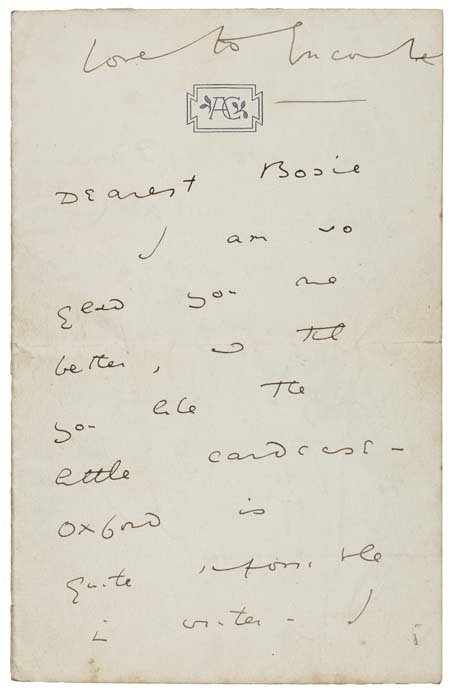 Love to Encombe
AC
Dearest Bosie
I am so
glad you are
better, and that
you like the
little cardcase -
Oxford is
quite impossible
in winter - I